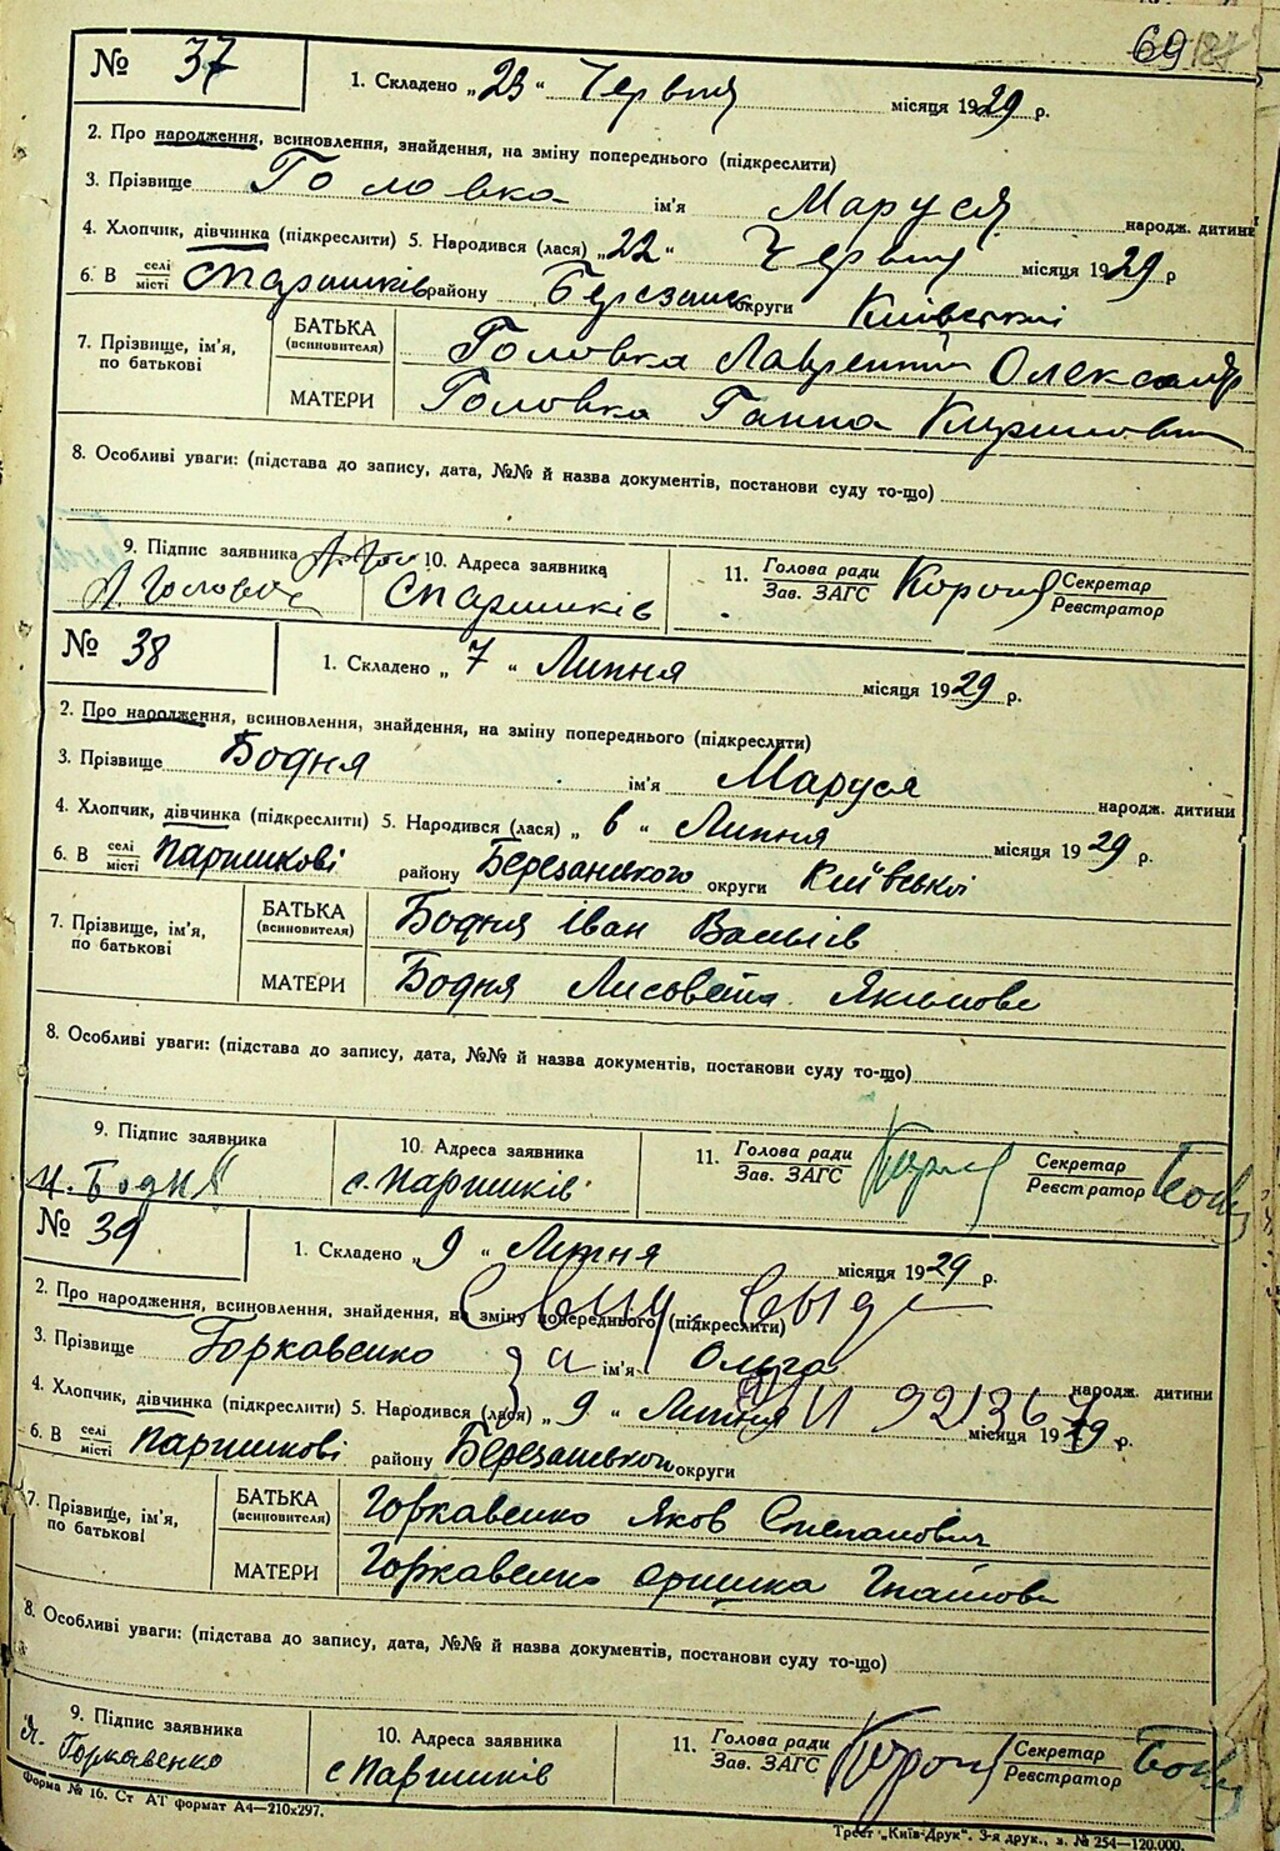 69
№ 37 1. Складено „23“ Червня місяця 1929 р.
2. Про народження, всиновлення, знайдення, на зміну попереднього (підкреслити)
3. Прізвище Головка ім'я Маруся народж. дитини
4. Хлопчик, дівчинка (підкреслити) 5. Народився (лася) „22“ Червня місяця 1929 р
6. В селі місті району округи Київської
7. Прізвище, ім'я, по батькові
БАТЬКА (всиновителя) Головка Лаврентій Олександр
МАТЕРИ Головка Ганна Кирилов
8. Особливі уваги: (підстава до запису, дата, №№ й назва документів, постанови суду то-що)
9. Підпис заявника 10. Адреса заявника 11. Голова ради Зав. ЗАГС Секретар Реєстратор
Л. Головка
№ 38 1. Складено „7“ Липня місяця 1929 р.
2. Про народження, всиновлення, знайдення, на зміну попереднього (підкреслити)
3. Прізвище Бодня ім'я Маруся народж. дитини
4. Хлопчик, дівчинка (підкреслити) 5. Народився (лася) „6“ Липня місяця 1929 р.
6. В селі місті Паришкові району Березанського округи Київської
7. Прізвище, ім'я, по батькові
БАТЬКА (всиновителя) Бодня Іван Васылів
МАТЕРИ Бодня Лисовета Якимове
8. Особливі уваги: (підстава до запису, дата, №№ й назва документів, постанови суду то-що)
9. Підпис заявника 10. Адреса заявника 11. Голова ради Зав. ЗАГС Секретар Реєстратор
И. Бодня с. Паришків
№ 39 1. Складено „9“ Липня місяця 1929 р.
2. Про народження, всиновлення, знайдення, на зміну попереднього (підкреслити)
3. Прізвище Горкавенко ім'я Ольга народж. дитини
4. Хлопчик, дівчинка (підкреслити) 5. Народився (лася) „9“ Липня місяця 1929 р.
6. В селі місті Паришкові району Березанського округи
7. Прізвище, ім'я, по батькові
БАТЬКА (всиновителя) Горкавенко Яков Степанович
МАТЕРИ Горкавенко Оришка Гнатова
8. Особливі уваги: (підстава до запису, дата, №№ й назва документів, постанови суду то-що)
9. Підпис заявника 10. Адреса заявника 11. Голова ради Зав. ЗАГС Секретар Реєстратор
Я. Горкавенко с Паришків
Форма № 16. Ст АТ формат А4—210х297.
Трест „Київ-Друк“. 3-я друк., з. № 254—120.000.